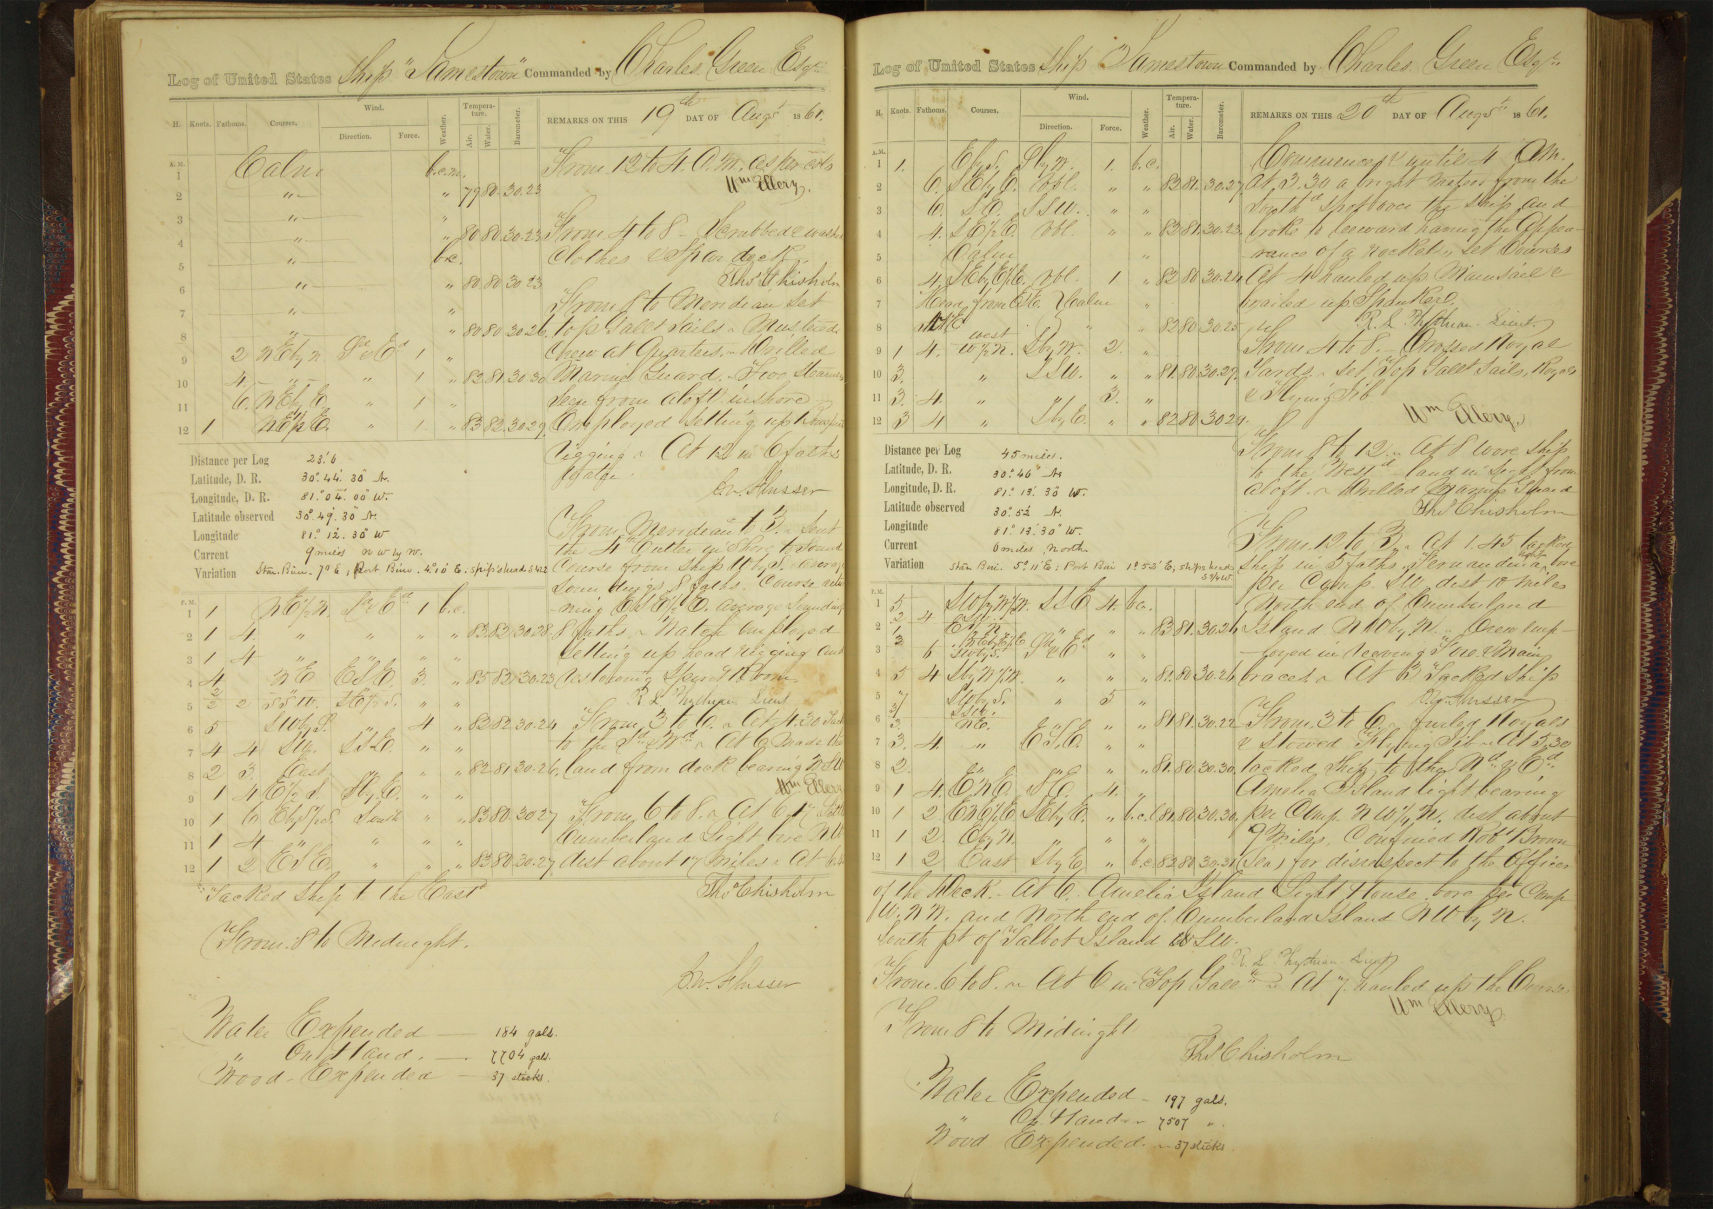 Log of United States Ship "Jamestown" Commanded by Charles Green Esqr
H. Knots. Fathoms. Courses. Wind. Direction. Force. Weather. Temperature. Air. Water. Barometer.
REMARKS ON THIS 19th DAY OF Augst 1861.
A.M.
1 Calm b.c.m.
2 " " 79 80 30.23
3 " "
4 " " 80 80 30.23
5 " b.c.
6 " " 80 80 30 23
7 "
8 " " 80 80 30 26
9 2 NEbyN Sd & Ed 1 "
10 4 " " 1 " 82 81 30 30
11 6 NEbyE " 1 "
12 1 " 1 " 83 82 30 29
From 12 to 4 A.M. as per cols
Wm Ellery.
From 4 to 8 - Scrubbed & washed
clothes & Spar deck.
Thos Chisholm
From 8 to Meridian Set
top Gallt Sails. Mustered
crew at Quarters. Drilled
Marine Guard. Two Steamers
seen from aloft inshore
Employed setting up
rigging. At 12 in 6 faths
Distance per Log 23.6
Latitude, D. R. 30° 44' 30" N.
Longitude, D. R. 81° 04' 00" W.
Latitude observed 30° 49' 30" N.
Longitude 81° 12' 30" W.
Current 9 miles N W by W.
Variation Stan. Binn. 7° E; Port Binn. 4° 10' E. ship's head
C.W. Flusser
From Meridian to 3. Sent
the 4th Cutter in Shore to sound
Course from ship W by S. average
soundings 8 faths. Course
average Sounding
8 faths. Watch employed
setting up head rigging and
restowing Spare
R L Phythian Lieut
From 3 to 6. At 4.30 Tackd
to the Sd & Wd. At 6 Made the
land from deck bearing
Wm Ellery
From 6 to 8. At 6
Cumberland Light bore
dist about 17 miles. At
P.M.
1 1 Sd & Ed 1 b.c.
2 1 4 " " " " 83 83 30.28
3 1 4 " " " "
4 4 NE ESE 3 " 85 82 30.23
5
6 5 SWbyS. 4 " 82 82 30.24
7 4 4 SW. SSE " "
8 2 3 East " " 82 81 30.26
9 1 4 SbyE. " "
10 1 6 South " " 83 80 30 27
11 1 4 " " " "
12 1 2 ESE " " " 83 80 30.27
Tacked Ship to the Eastd
Thos Chisholm
From 8 to Midnight.
C.W. Flusser
Water Expended — 184 gals.
" On Hand. — 7704 gals.
Wood - Expended — 37 sticks.
Log of United States Ship "Jamestown" Commanded by Charles Green Esqr
H. Knots. Fathoms. Courses. Wind. Direction. Force. Weather. Temperature. Air. Water. Barometer.
REMARKS ON THIS 20th DAY OF Augst 1861.
A.M.
1 1. SbyW. 1. b.c.
2 6. SEbyE. Vbl. " " 82 81 30.27
3 6. SE. SSW. " "
4 4. Vbl. " " 82 81 30.23
5 Calm "
6 4 Vbl 1 " 82 80 30.24
7 Calm "
8 " " 82 80 30.25
9 1 4. SbyW. 2. "
10 3. " SSW. " " 81 80 30.27
11 3. 4. " " 3. "
12 3 4 " SbyE. " " 82 80 30 29
Commences & until 4 AM.
At 3.30 a bright meteor from the
Southd shot over the ship and
broke to leeward having the appea-
rance of a rocket. Set Courses
At 4 hauled up Mainsail &
brailed up Spanker.
R L Phythian Lieut
From 4 to 8. Crossed Royal
Yards. Set Top Gallt Sails, Royals
& Flying Jib
Wm Ellery.
From 8 to 12. At 8 wore ship
to the Westd land in sight from
aloft. Drilled Marine Guard
Thos Chisholm
Distance per Log 45 miles.
Latitude, D. R. 30° 46' N.
Longitude, D. R. 81° 13' 30" W.
Latitude observed 30° 52' N.
Longitude 81° 13' 30" W.
Current 6 miles North.
Variation Stan Bin. 5° 11' E; Port Bin 1° 53' E; ships head
From 12 to 3. At 1.45 tacked
ship in 5 faths. Fernandina bore
per Comp SW. dist 10 miles
North end of Cumberland
Island NW by N. Crew emp-
loyed in reeving Fore & Main
braces. At 3 Tacked Ship
C.W. Flusser
From 3 to 6. furled Royals
& stowed Flying Jib. At 5.30
tacked ship to the Nd & Ed
Amelia Island light bearing
per Comp. dist about
9 miles. Confined Robt Brown
(Sea) for disrespect to the Officer
P.M.
1 5 SSE 4. b.c.
2 " " " 83 81. 30.26
3 6 Sd & Ed " "
4 5 4 " " " 81. 80 30.26
5 SWbyS. " 5 "
6 3 NE. " " 81 81. 30.22
7 3. 4. " ESE. " "
8 2. " " " " 81. 80. 30.30
9 1 4 ENE. SE. 4. "
10 1 2 SEbyE. " b.c.l 81. 80 30.30
11 1 2. EbyN. " " "
12 1 2 East SbyE " b.c. 82 80 30.31
of the Deck. At 6. Amelia Island Light House bore per Comp
and North end of Cumberland Island NW by N.
South pt of Talbot Island SW.
R. L. Phythian Lieut
From 6 to 8. At 6 in Top Gallts. At 7. hauled up the Courses
Wm Ellery.
From 8 to Midnight
Thos Chisholm
Water Expended - 197 gals.
" On Hand 7507 "
Wood Expended. 37 sticks